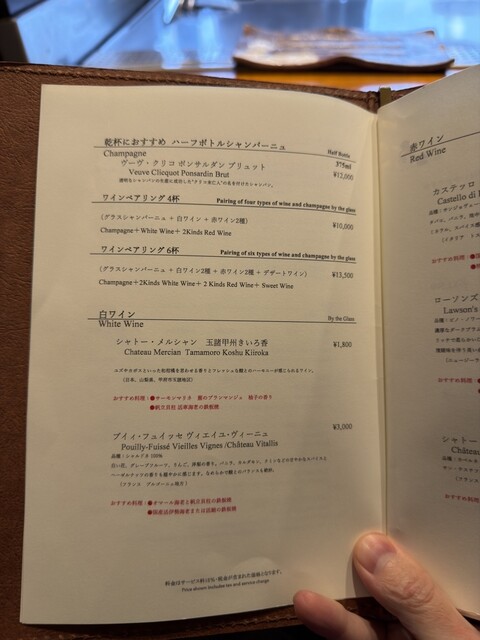 乾杯におすすめ ハーフボトルシャンパーニュ
Champagne
Half Bottle
ヴーヴ・クリコ ポンサルダン ブリュット
375ml
Veuve Clicquot Ponsardin Brut
¥12,000
ワインペアリング 4杯
Pairing of four types of wine and champagne by the glass
(グラスシャンパーニュ + 白ワイン + 赤ワイン2種)
¥10,000
Champagne+White Wine+ 2Kinds Red Wine
ワインペアリング 6杯
Pairing of six types of wine and champagne by the glass
(グラスシャンパーニュ + 白ワイン2種 + 赤ワイン2種 + デザートワイン)
¥13,500
Champagne+2Kinds White Wine+ 2 Kinds Red Wine+ Sweet Wine
白ワイン
White Wine
By the Glass
シャトー・メルシャン 玉諸甲州きいろ香
¥1,800
Chateau Mercian Tamamoro Koshu Kiiroka
(日本、山梨県、甲府市玉諸地区)
おすすめ料理:●サーモンマリネ 蕪のブランマンジェ 柚子の香り
プイィ・フュイッセ ヴィエイユ・ヴィーニュ
¥3,000
Pouilly-Fuissé Vieilles Vignes /Château Vitallis
品種:シャルドネ 100%
(フランス ブルゴーニュ地方)
おすすめ料理:●オマール海老と帆立貝柱の鉄板焼
●国産活伊勢海老または活鮑の鉄板焼
料金はサービス料15%・税金が含まれた価格となります。
Price shown includes tax and service charge
赤ワイン
Red Wine
カステッロ
Castello di
ローソンズ
Lawson's
シャトー
Château